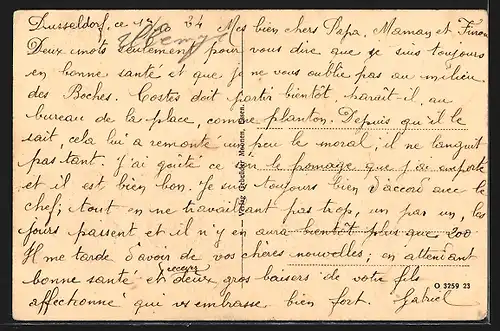 Dusseldorf, ce 34 Mes bien chers Papa, Maman et
Deux mots seulement pour vous dire que je suis toujours
en bonne santé et que je ne vous oublie pas au milieu
des Boches. Cortes doit partir bientôt, paraît-il, au
bureau de la place, comme planton. Depuis qu'il le
sait, cela lui a remonté un peu le moral; il ne languit
pas tant. J'ai goûté ce soir le fromage que j'ai emporté
et il est bien bon. Je suis toujours bien d'accord avec le
chef; tout en ne travaillant pas trop, un par un, les
jours passent et il n'y en aura bientôt plus que 200
Il me tarde d'avoir de vos chères nouvelles; en attendant
bonne santé et recevez deux gros baisers de votre fils
affectionné qui vs embrasse bien fort. Gabriel
Verlag Gebrüder Moönen, Essen.
O 3259 23